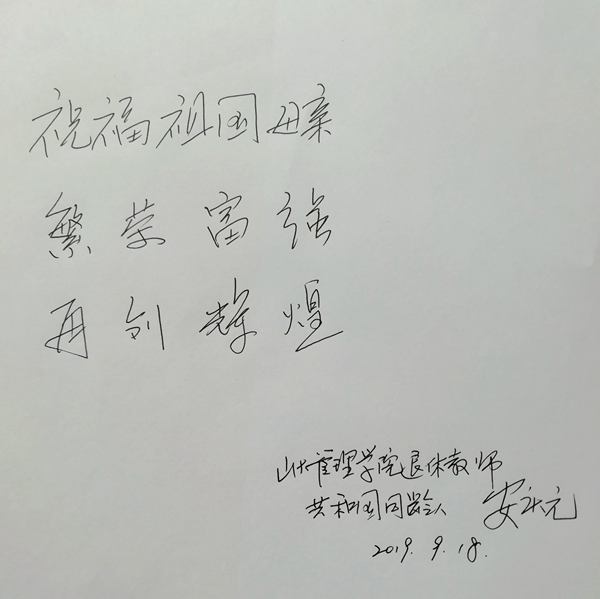 祝福祖国母亲
繁荣富强
再创辉煌
山大管理学院退休教师
共和国同龄人 安庆元
2019.9.18.